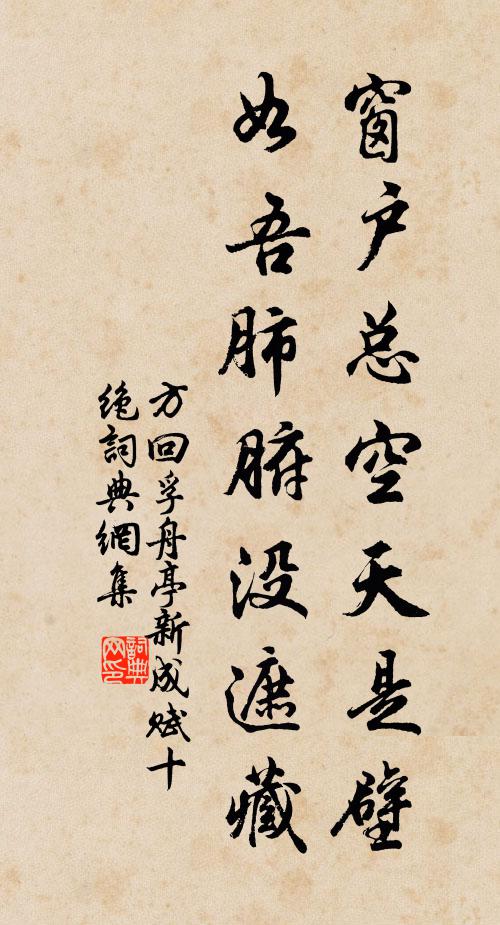 窗户总空天是壁
如吾肺腑没遮藏
方回孚舟亭新成赋十
绝詞典網集
詞典网印